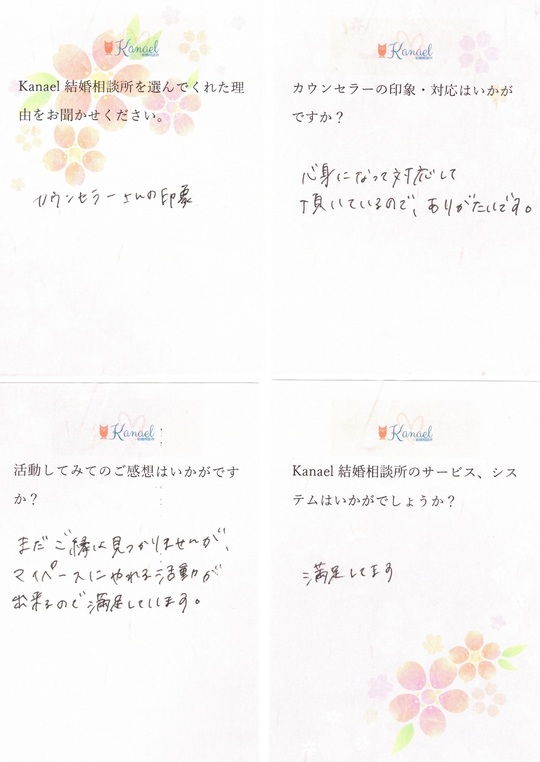 Kanael
Kanael 結婚相談所を選んでくれた理
由をお聞かせください。
カウンセラーさんの印象
Kanael
カウンセラーの印象・対応はいかが
ですか？
心身になって対応して
頂いているので、ありがたいです。
Kanael
活動してみてのご感想はいかがです
か？
まだご縁は見つかりませんが、
マイペースにやれる活動が
出来るので満足しています。
Kanael
Kanael 結婚相談所のサービス、シス
テムはいかがでしょうか？
満足してます